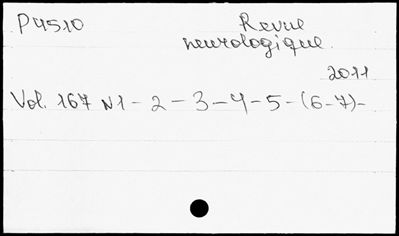 P4510
Revue
neurologique.
2011
Vol. 167 N1 - 2 - 3 - 4 - 5 - (6-7) -